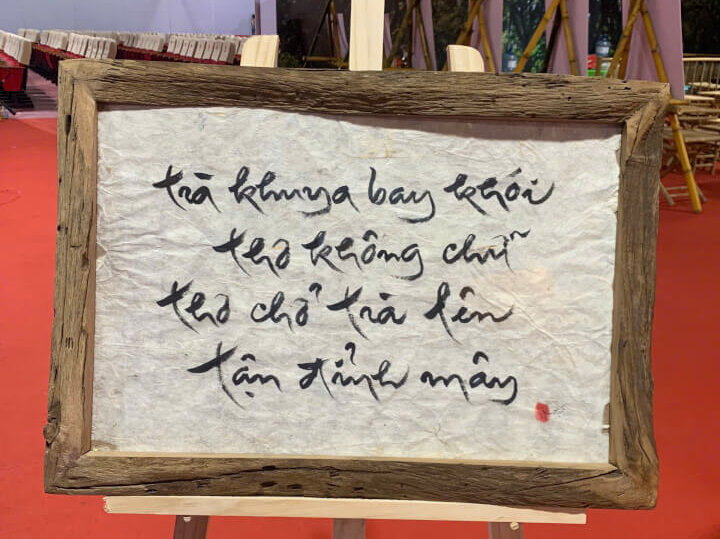 trà khuya bay khói
thơ không chữ
thơ chở trà lên
tận đỉnh mây